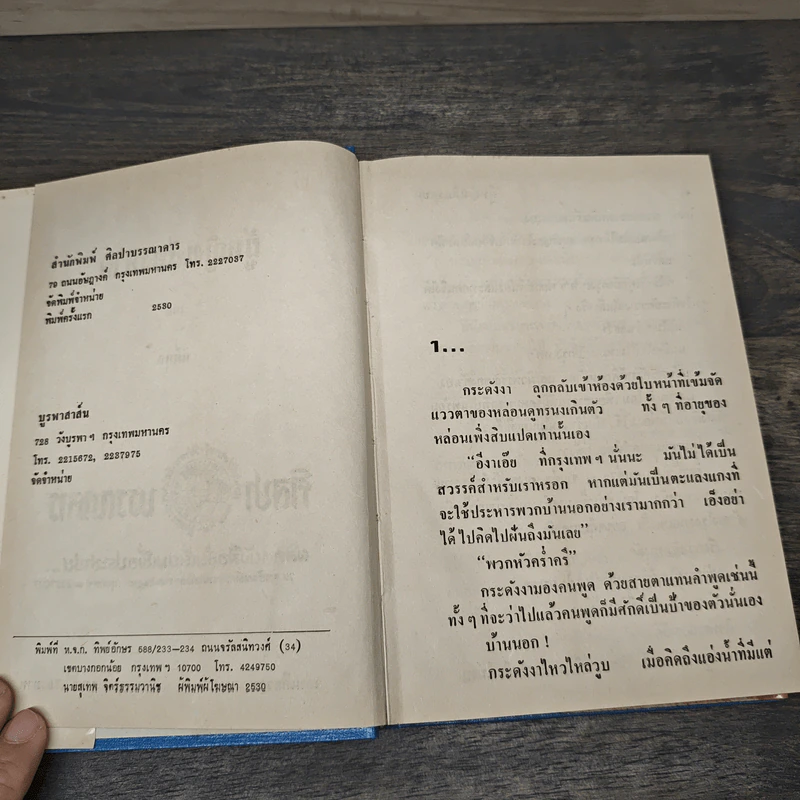 สำนักพิมพ์ ศิลปาบรรณาคาร
79 ถนนอัษฎางค์ กรุงเทพมหานคร โทร. 2227037
จัดพิมพ์จำหน่าย
พิมพ์ครั้งแรก 2530
บูรพาสาส์น
728 วังบูรพา ฯ กรุงเทพมหานคร
โทร. 2215672, 2237975
จัดจำหน่าย
พิมพ์ที่ ห.จ.ก. ทิพย์อักษร 588/233-234 ถนนจรัลสนิทวงศ์ (34)
เขตบางกอกน้อย กรุงเทพ ฯ 10700 โทร. 4249750
นายสุเทพ จิตร์ธรรมวานิช ผู้พิมพ์ผู้โฆษณา 2530
1...
กระดังงา ลุกกลับเข้าห้องด้วยใบหน้าที่เข้มจัด
แววตาของหล่อนดูทรนงเกินตัว ทั้ง ๆ ที่อายุของ
หล่อนเพิ่งสิบแปดเท่านั้นเอง
“อีงาเอ๊ย ที่กรุงเทพ ฯ นั่นนะ มันไม่ได้เป็น
สวรรค์สำหรับเราหรอก หากแต่มันเป็นตะแลงแกงที่
จะใช้ประหารพวกบ้านนอกอย่างเรามากกว่า เอ็งอย่า
ได้ไปคิดไปฝันถึงมันเลย”
“พวกหัวคร่ำครึ”
กระดังงามองคนพูด ด้วยสายตาแทนคำพูดเช่นนี้
ทั้ง ๆ ที่จะว่าไปแล้วคนพูดก็มีศักดิ์เป็นป้าของตัวนั่นเอง
บ้านนอก !
กระดังงาไหวไหล่วูบ เมื่อคิดถึงแอ่งน้ำที่มีแต่